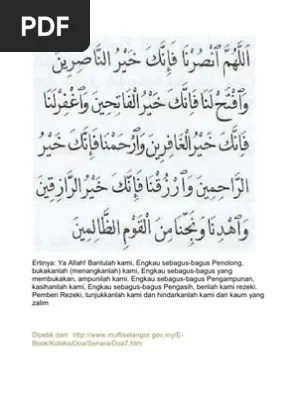 PDF
اَللّٰهُمَّ انْصُرْنَا فَإِنَّكَ خَيْرُ النَّاصِرِينَ
وَافْتَحْ لَنَا فَإِنَّكَ خَيْرُ الْفَاتِحِينَ وَاغْفِرْ لَنَا
فَإِنَّكَ خَيْرُ الْغَافِرِينَ وَارْحَمْنَا فَإِنَّكَ خَيْرُ
الرَّاحِمِينَ وَارْزُقْنَا فَإِنَّكَ خَيْرُ الرَّازِقِينَ
وَاهْدِنَا وَنَجِّنَا مِنَ الْقَوْمِ الظَّالِمِينَ
Ertinya: Ya Allah! Bantulah kami, Engkau sebagus-bagus Penolong,
bukakanlah (menangkanlah) kami, Engkau sebagus-bagus yang
membukakan, ampunilah kami. Engkau sebagus-bagus Pengampunan,
kasihanilah kami, Engkau sebagus-bagus Pengasih, berilah kami rezeki.
Pemberi Rezeki, tunjukkanlah kami dan hindarkanlah kami dari kaum yang
zalim
Dipetik dari: http://www.muftiselangor.gov.my/E-
Book/KoleksiDoa/SenaraiDoa7.htm